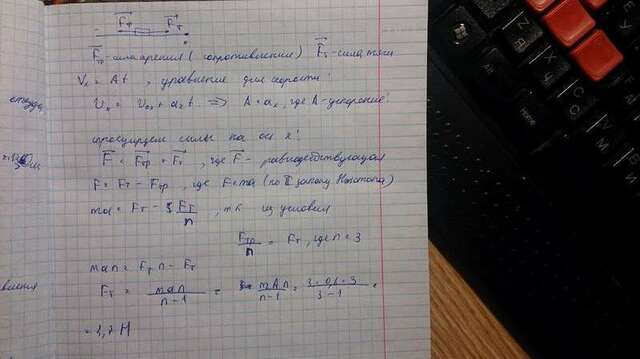 F_тр F_т
F_тр - сила трения (сопротивления) F_т - сила тяги
V_x = At, уравнение для скорости!
откуда,
V_x = V_ox + a_x t => A = a_x, где A - ускорение!
проецируем силы на ось x!
F = F_тр + F_т, где F - равнодействующая
F = F_т - F_тр, где F = ma (по II закону Ньютона)
ma = F_т - F_т/n, тк из условия
F_тр/n = F_т, где n = 3
man = F_т n - F_т
F_т = man/(n-1) = mAn/(n-1) = (3·0,6·3)/(3-1) =
= 2,7 Н